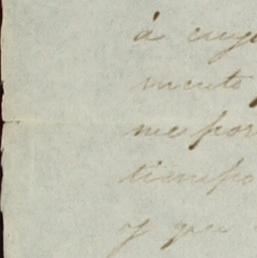 á cuyo
mento
me por
tiempo
y que